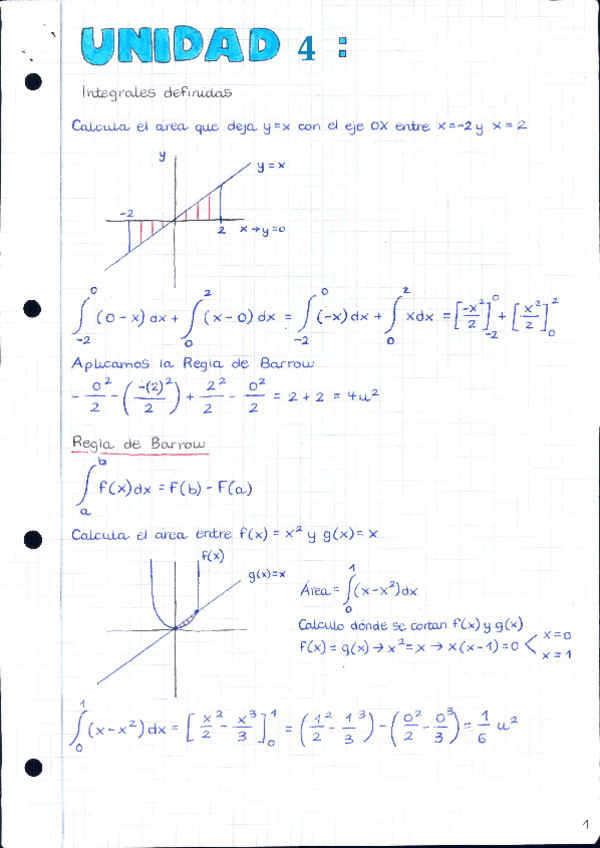 UNIDAD 4:
Integrales definidas
Calcula el área que deja y=x con el eje OX entre x=-2 y x=2
y
y=x
-2
2 x→y=0
∫₋₂⁰ (0-x)dx + ∫₀² (x-0)dx = ∫₋₂⁰ (-x)dx + ∫₀² xdx = [-x²/2]₋₂⁰ + [x²/2]₀²
Aplicamos la Regla de Barrow
- 0²/2 - (-(2)²/2) + 2²/2 - 0²/2 = 2+2 = 4u²
Regla de Barrow
∫ₐᵇ f(x)dx = F(b) - F(a)
Calcula el área entre f(x) = x² y g(x) = x
f(x)
g(x)=x
Área = ∫₀¹ (x-x²)dx
Calculo dónde se cortan f(x) y g(x)
f(x) = g(x) → x² = x → x(x-1) = 0 < x=0
x=1
∫₀¹ (x-x²)dx = [x²/2 - x³/3]₀¹ = (1²/2 - 1³/3) - (0²/2 - 0³/3) = 1/6 u²
1